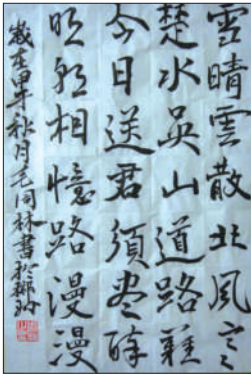 雪晴雲散北風寒
楚水吳山道路難
今日送君須盡醉
明朝相憶路漫漫
歲在甲午秋月毛同林書於